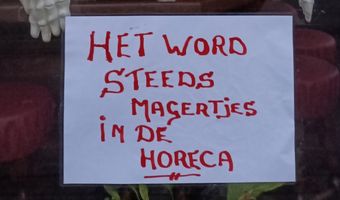 HET WORD
STEEDS
MAGERTJES
IN DE
HORECA